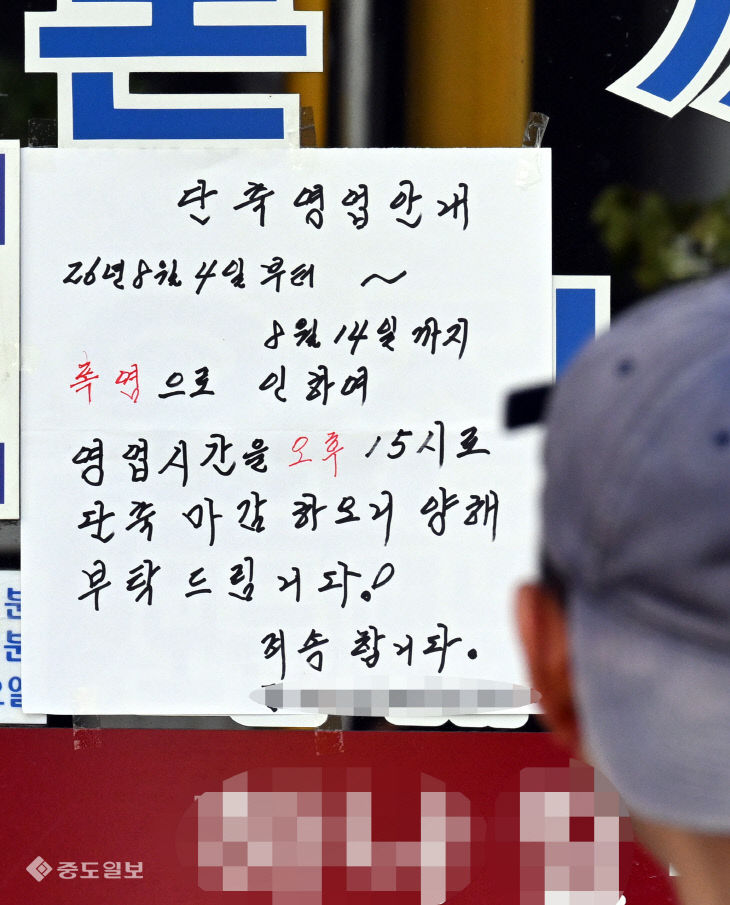 단축영업안내
26년8월4일부터 ~
8월14일까지
폭염으로 인하여
영업시간을 오후 15시로
단축 마감 하오니 양해
부탁 드립니다.!
죄송합니다.
중도일보